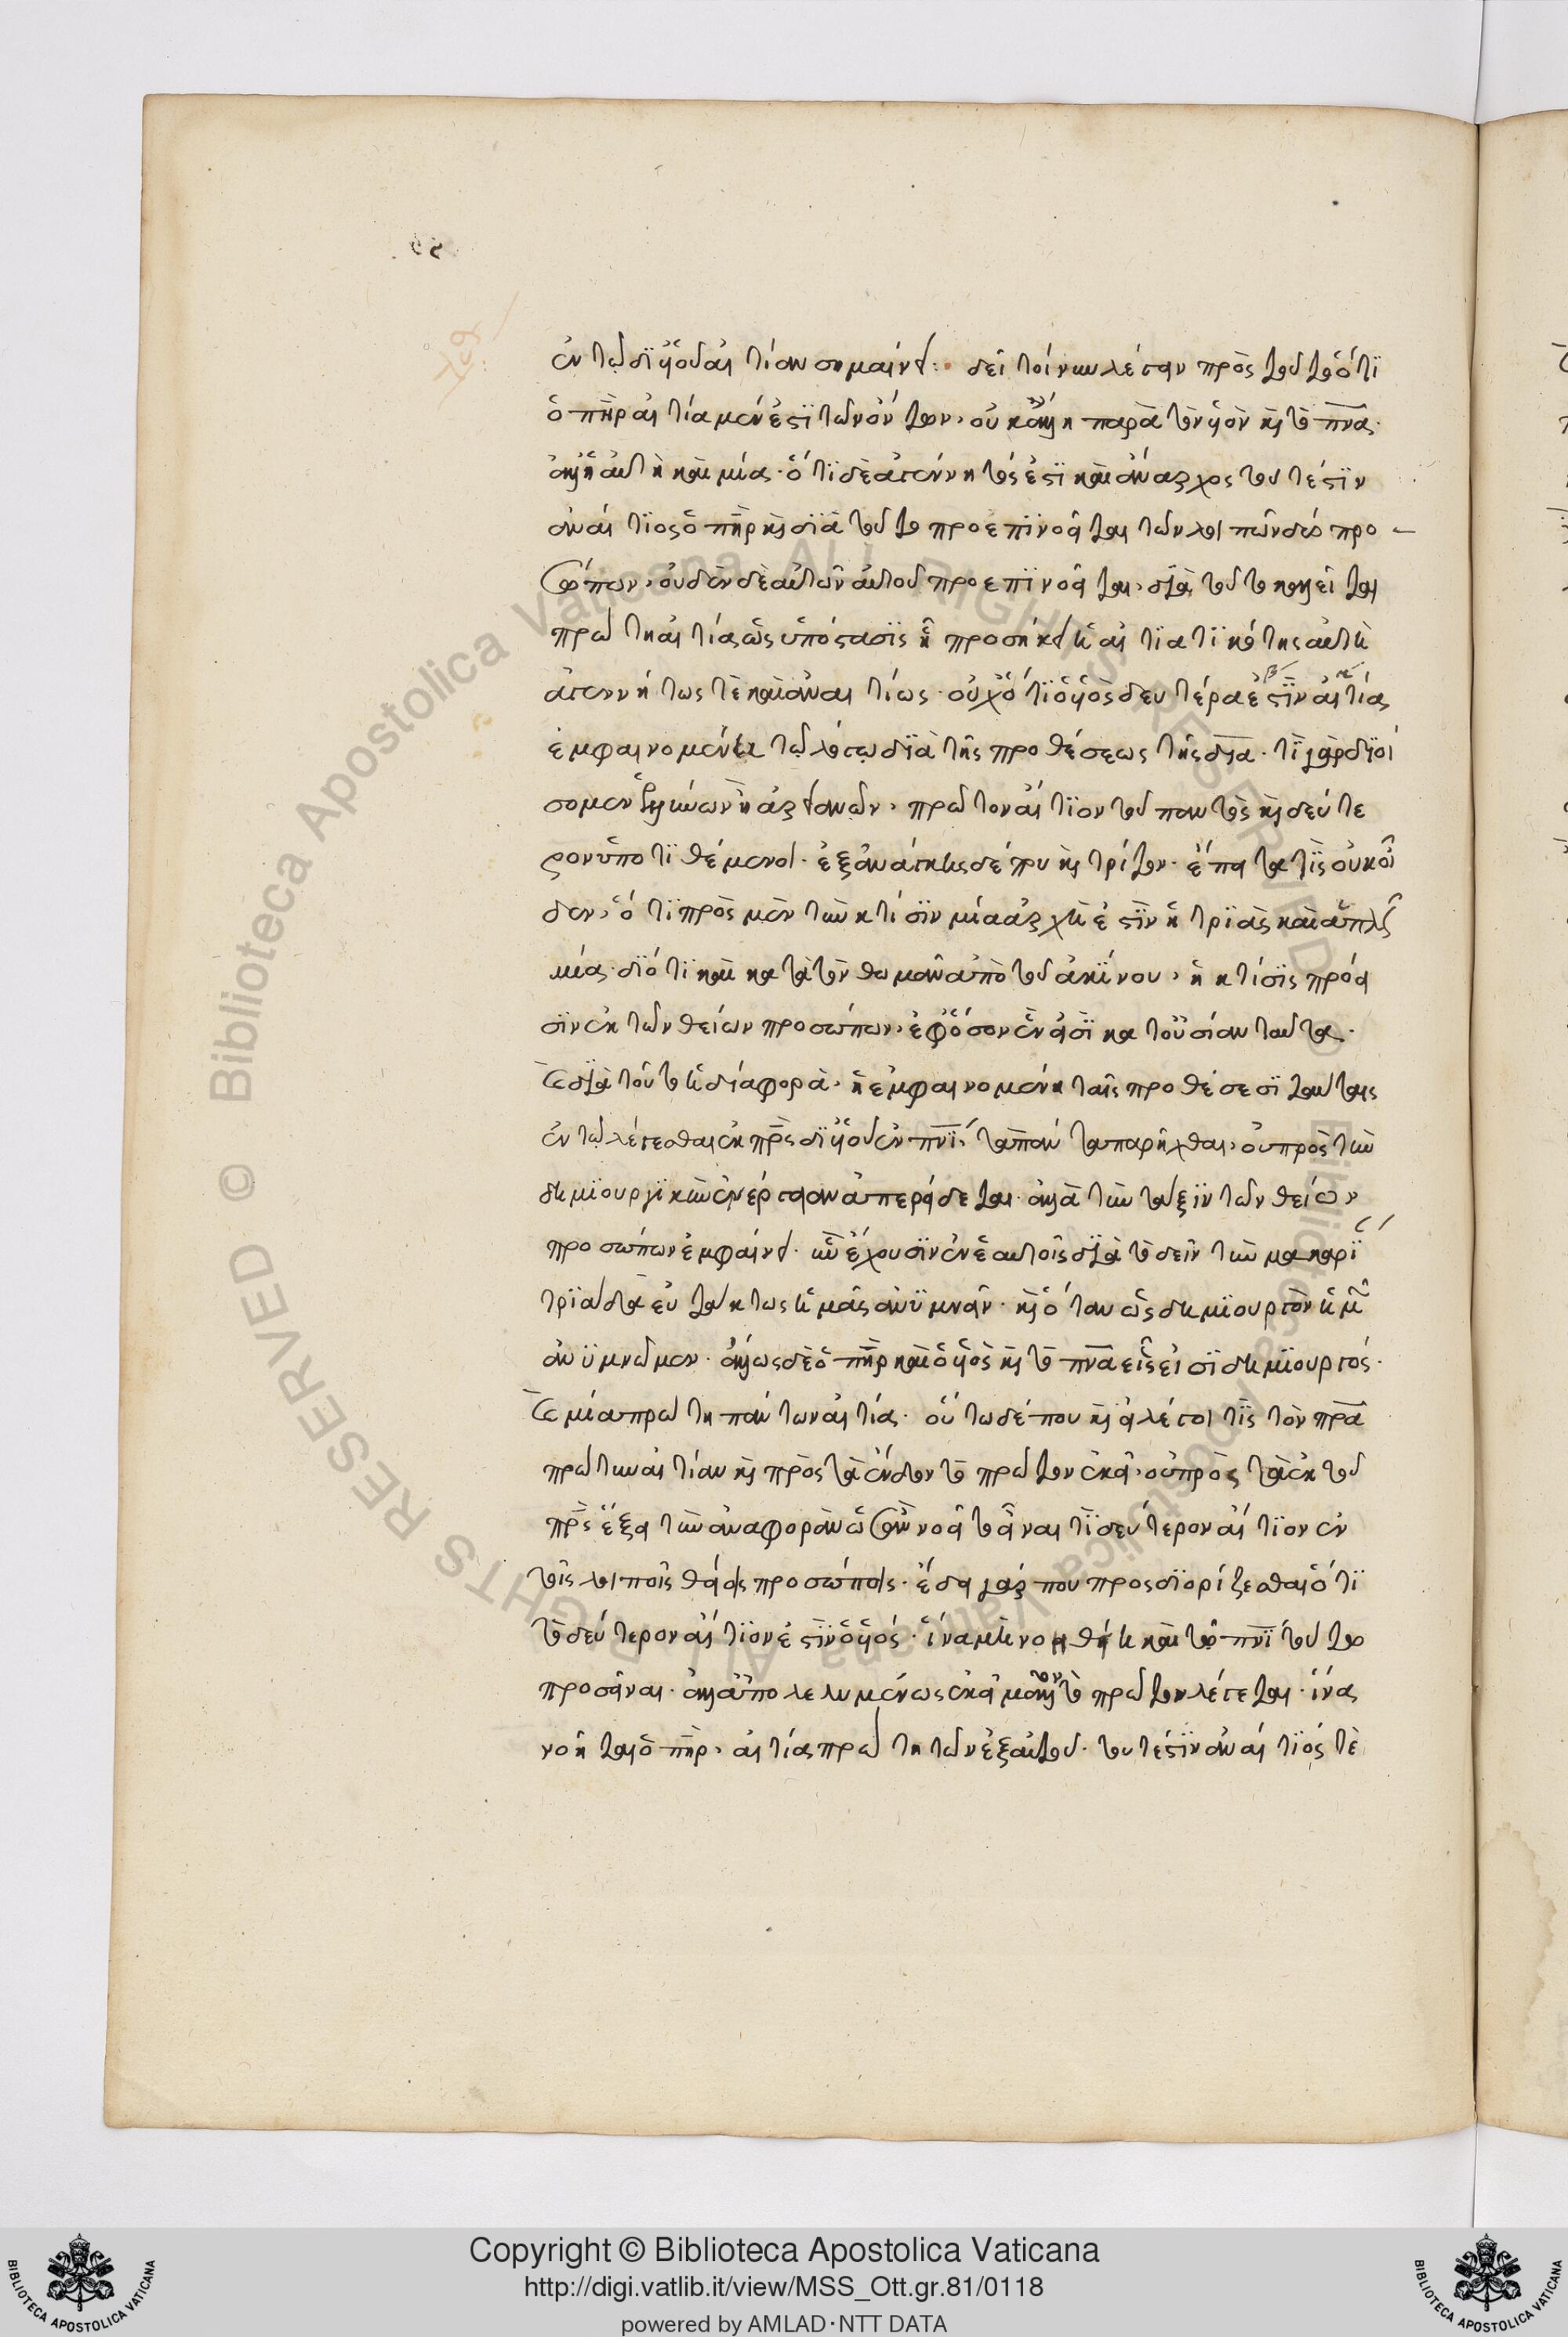 ἐν τῷ δι' υἱοῦ αἰτίαν σημαίνει· δεῖ τοίνυν λέγειν πρὸς τοῦτο ὅτι
ὁ πηρ αἰτία μέν ἐστι τῶν ὄντων, οὐκ ἄλλη παρὰ τὸν υἱὸν καὶ τὸ πνα·
ἀλλ' ἡ αὐτὴ καὶ μία· ὅτι δὲ ἀγέννητός ἐστι καὶ ἄναρχος τουτέστιν
ἀναίτιος ὁ πηρ καὶ διὰ τοῦτο προεπινοεῖται τῶν λοιπῶν δύο προ
σώπων, οὐδὲν δὲ αὐτῶν αὐτοῦ προεπινοεῖται, διὰ τοῦτο καλεῖται
πρώτη αἰτία ὡς ὑπόστασις ᾗ προσήκει ἡ αἰτιατικότης αὐτὴ
ἀγεννήτως τὲ καὶ ἀναιτίως· οὐχ ὅτι ὁ υἱὸς δευτέρα ἐστὶν αἰτία
ἐμφαινομένη τῷ λόγῳ διὰ τῆς προθέσεως τῆς δια· τί γὰρ διοί
σομεν ἑλλήνων ἢ ἀρειανῶν, πρῶτον αἴτιον τοῦ παντὸς καὶ δεύτε
ρον ὑποτιθέμενοι· ἐξ ἀνάγκης δέ που καὶ τρίτον· ἔπειτα τίς οὐκ οἶ
δεν, ὅτι πρὸς μὲν τὴν κτίσιν μία ἀρχή ἐστιν ἡ τριὰς καὶ ἁπλῆ
μία· διότι καὶ κατὰ τὸν θωμᾶν ἀπὸ τοῦ ἀκίνου, ἡ κτίσις πρόει
σιν ἐκ τῶν θείων προσώπων, ἐφ' ὅσον ἕν εἰσι κατ' οὐσίαν ταῦτα·
διὰ τοῦτο ἡ διαφορὰ, ἡ ἐμφαινομένη ταῖς προθέσεσι ταύταις
ἐν τῷ λέγεσθαι ἐκ πρς δι' υἱοῦ ἐν πνι, τὰ πάντα παρῆχθαι, οὐ πρὸς τὴν
δημιουργικὴν ἐνέργειαν ἀπερείδεται· ἀλλὰ τὴν τάξιν τῶν θείων
προσώπων ἐμφαίνει· ἣν ἔχουσιν ἐν ἑαυτοῖς διὰ τὸ δεῖν τὴν μακαρί
τριάδα εὐτάκτως ἡμᾶς ἀνυμνεῖν· καὶ ὅταν ὡς δημιουργὸν ἡμῶν
ἀνυμνῶμεν· ἄλλως δὲ ὁ πηρ καὶ ὁ υἱὸς καὶ τὸ πνα εἷς εἰσι δημιουργός·
μία πρώτη πάντων αἰτία· οὕτω δέ που καὶ εἰ λέγοι τίς τὸν πρα
πρώτην αἰτίαν καὶ πρὸς τὰ ἔνδον τὸ πρῶτον ἐκεῖ, οὐ πρὸς τὰ ἐκ τοῦ
πρς ἕξει τὴν ἀναφορὰν ὥστ' ἂν νοεῖσθαι εἶναί τι δεύτερον αἴτιον ἐν
τοῖς λοιποῖς θείοις προσώποις· ἔδει γάρ που προσδιορίζεσθαι ὅτι
τὸ δεύτερον αἴτιόν ἐστιν ὁ υἱός· ἵνα μὴ νοηθείη καὶ τῷ πνι τοῦτο
προσεῖναι· ἀλλ' ἀπολελυμένως ἐκεῖ μᾶλλον τὸ πρῶτον λέγεται· ἵνα
νοῆται ὁ πηρ, αἰτία πρώτη τῶν ἐξ αὐτοῦ· τουτέστιν ἀναίτιός τὲ